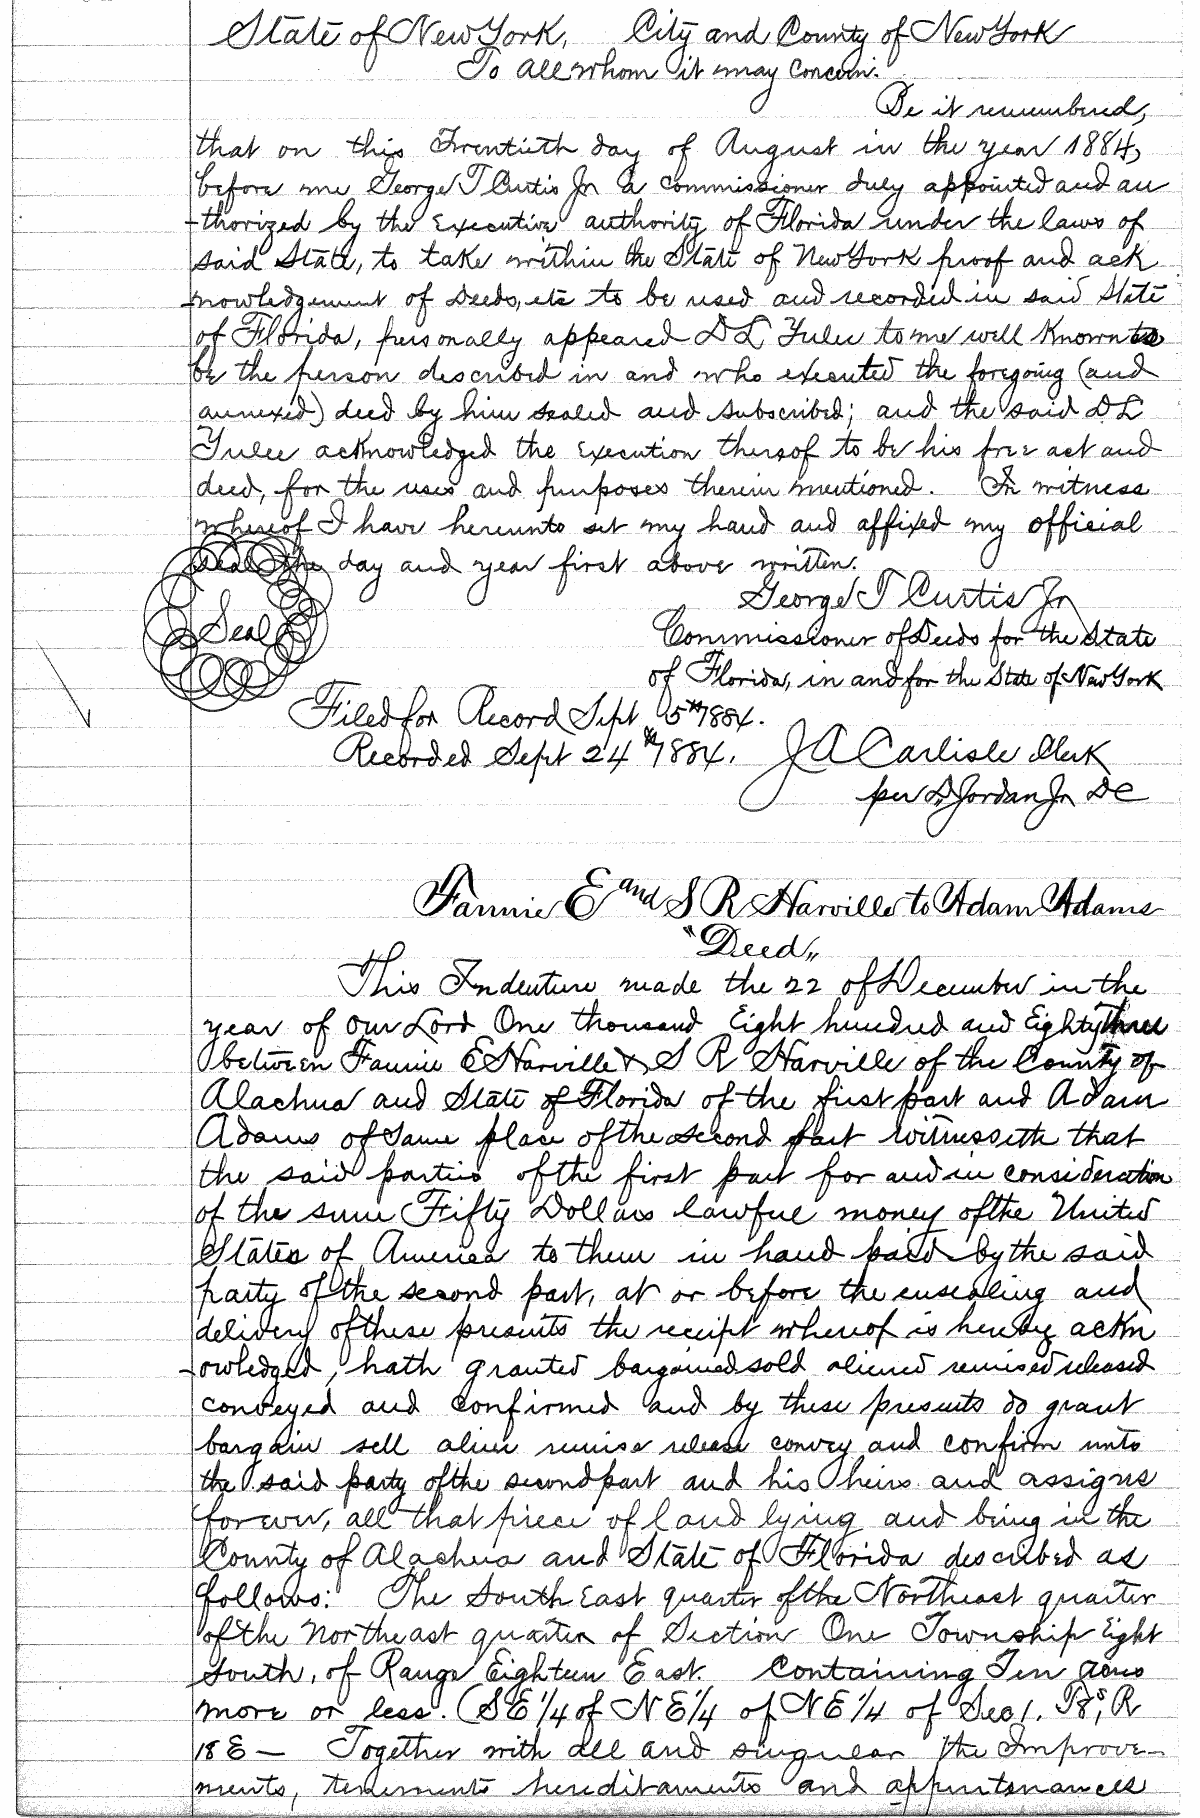 State of New York, City and County of New York
To all whom it may Concern.
Be it remembered,
that on this Twentieth day of August in the year 1884,
before me George T Curtis Jr a commissioner duly appointed and au
-thorized by the Executive authority of Florida under the laws of
said State, to take within the State of New York proof and ack
-nowledgement of Deeds, etc to be used and recorded in said State
of Florida, personally appeared D L Yulee to me well Known to
be the person described in and who executed the foregoing (and
annexed) deed by him sealed and subscribed; and the said D L
Yulee acknowledged the Execution thereof to be his free act and
deed, for the uses and purposes therein mentioned. In witness
whereof I have hereunto set my hand and affixed my official
seal the day and year first above written.
George T Curtis Jr
Seal
Commissioner of Deeds for the State
of Florida, in and for the State of New York
Filed for Record Sept 15th 1884.
Recorded Sept 24th 1884. J A Carlisle Clerk
per D Jordan Jr DC
Fannie E and S R Harville to Adam Adams
"Deed"
This Indenture made the 22 of December in the
year of our Lord One thousand Eight hundred and Eighty three
between Fannie E Harville & S R Harville of the County of
Alachua and State of Florida of the first part and Adam
Adams of same place of the second part witnesseth that
the said parties of the first part for and in consideration
of the sum Fifty Dollars lawful money of the United
States of America to them in hand paid by the said
party of the second part, at or before the ensealing and
delivery of these presents the receipt whereof is hereby ackn
-owledged, hath granted bargained sold aliened remised released
conveyed and confirmed and by these presents do grant
bargain sell alien remise release convey and confirm unto
the said party of the second part and his heirs and assigns
forever, all that piece of land lying and being in the
County of Alachua and State of Florida described as
follows: The South East quarter of the Northeast quarter
of the Northeast quarter of Section One Township Eight
South, of Range Eighteen East. Containing Ten acres
more or less. (SE 1/4 of NE 1/4 of NE 1/4 of Sec 1. T8s, R
18 E — Together with all and singular the Improve-
ments, tenements hereditaments and appurtenances